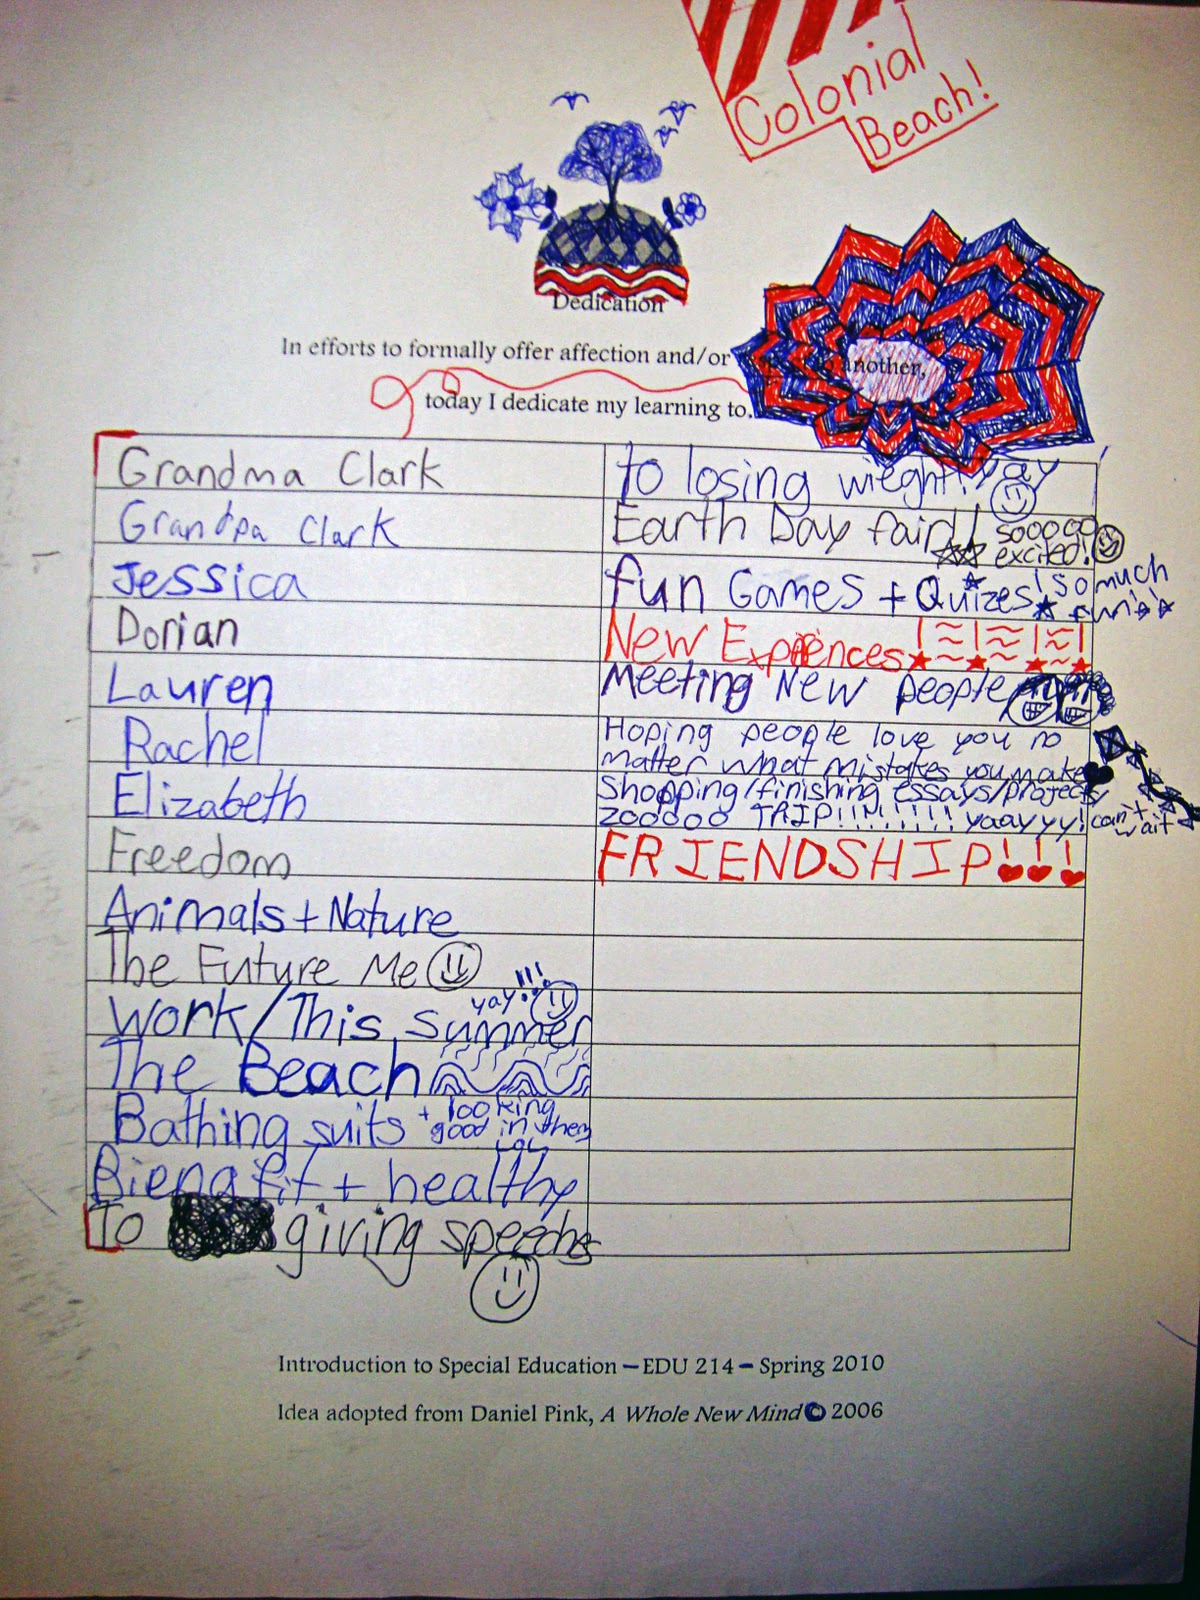 Colonial
Beach!
Dedication
In efforts to formally offer affection and/or another,
today I dedicate my learning to...
Grandma Clark
to losing wieght! yay
Grandpa Clark
Earth Day fair! sooooo
excited!
Jessica
fun Games + Quizes! so much
fun
Dorian
New Expriences!!!!
Lauren
Meeting New people
Rachel
Hoping people love you no
matter what mistakes you make
Elizabeth
Shopping/finishing essays/projects/
zooooo TRIP!!!!!!!!! yaayyy! can't
wait
Freedom
FRIENDSHIP!!!
Animals + Nature
The Future Me
yay!!!
Work/This summer
The Beach
Bathing suits + looking
good in them
LOL
Bieng fit + healthy
To giving speeches
Introduction to Special Education – EDU 214 – Spring 2010
Idea adopted from Daniel Pink, A Whole New Mind © 2006